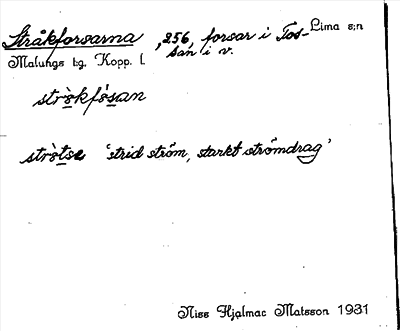 Stråkforsarna, 256, forsar i Tos- Lima s:n
Malungs tg. Kopp. l. sån i v.
stròkfo̍san
stròtse 'strid ström, starkt strömdrag'
Niss Hjalmar Matsson 1931